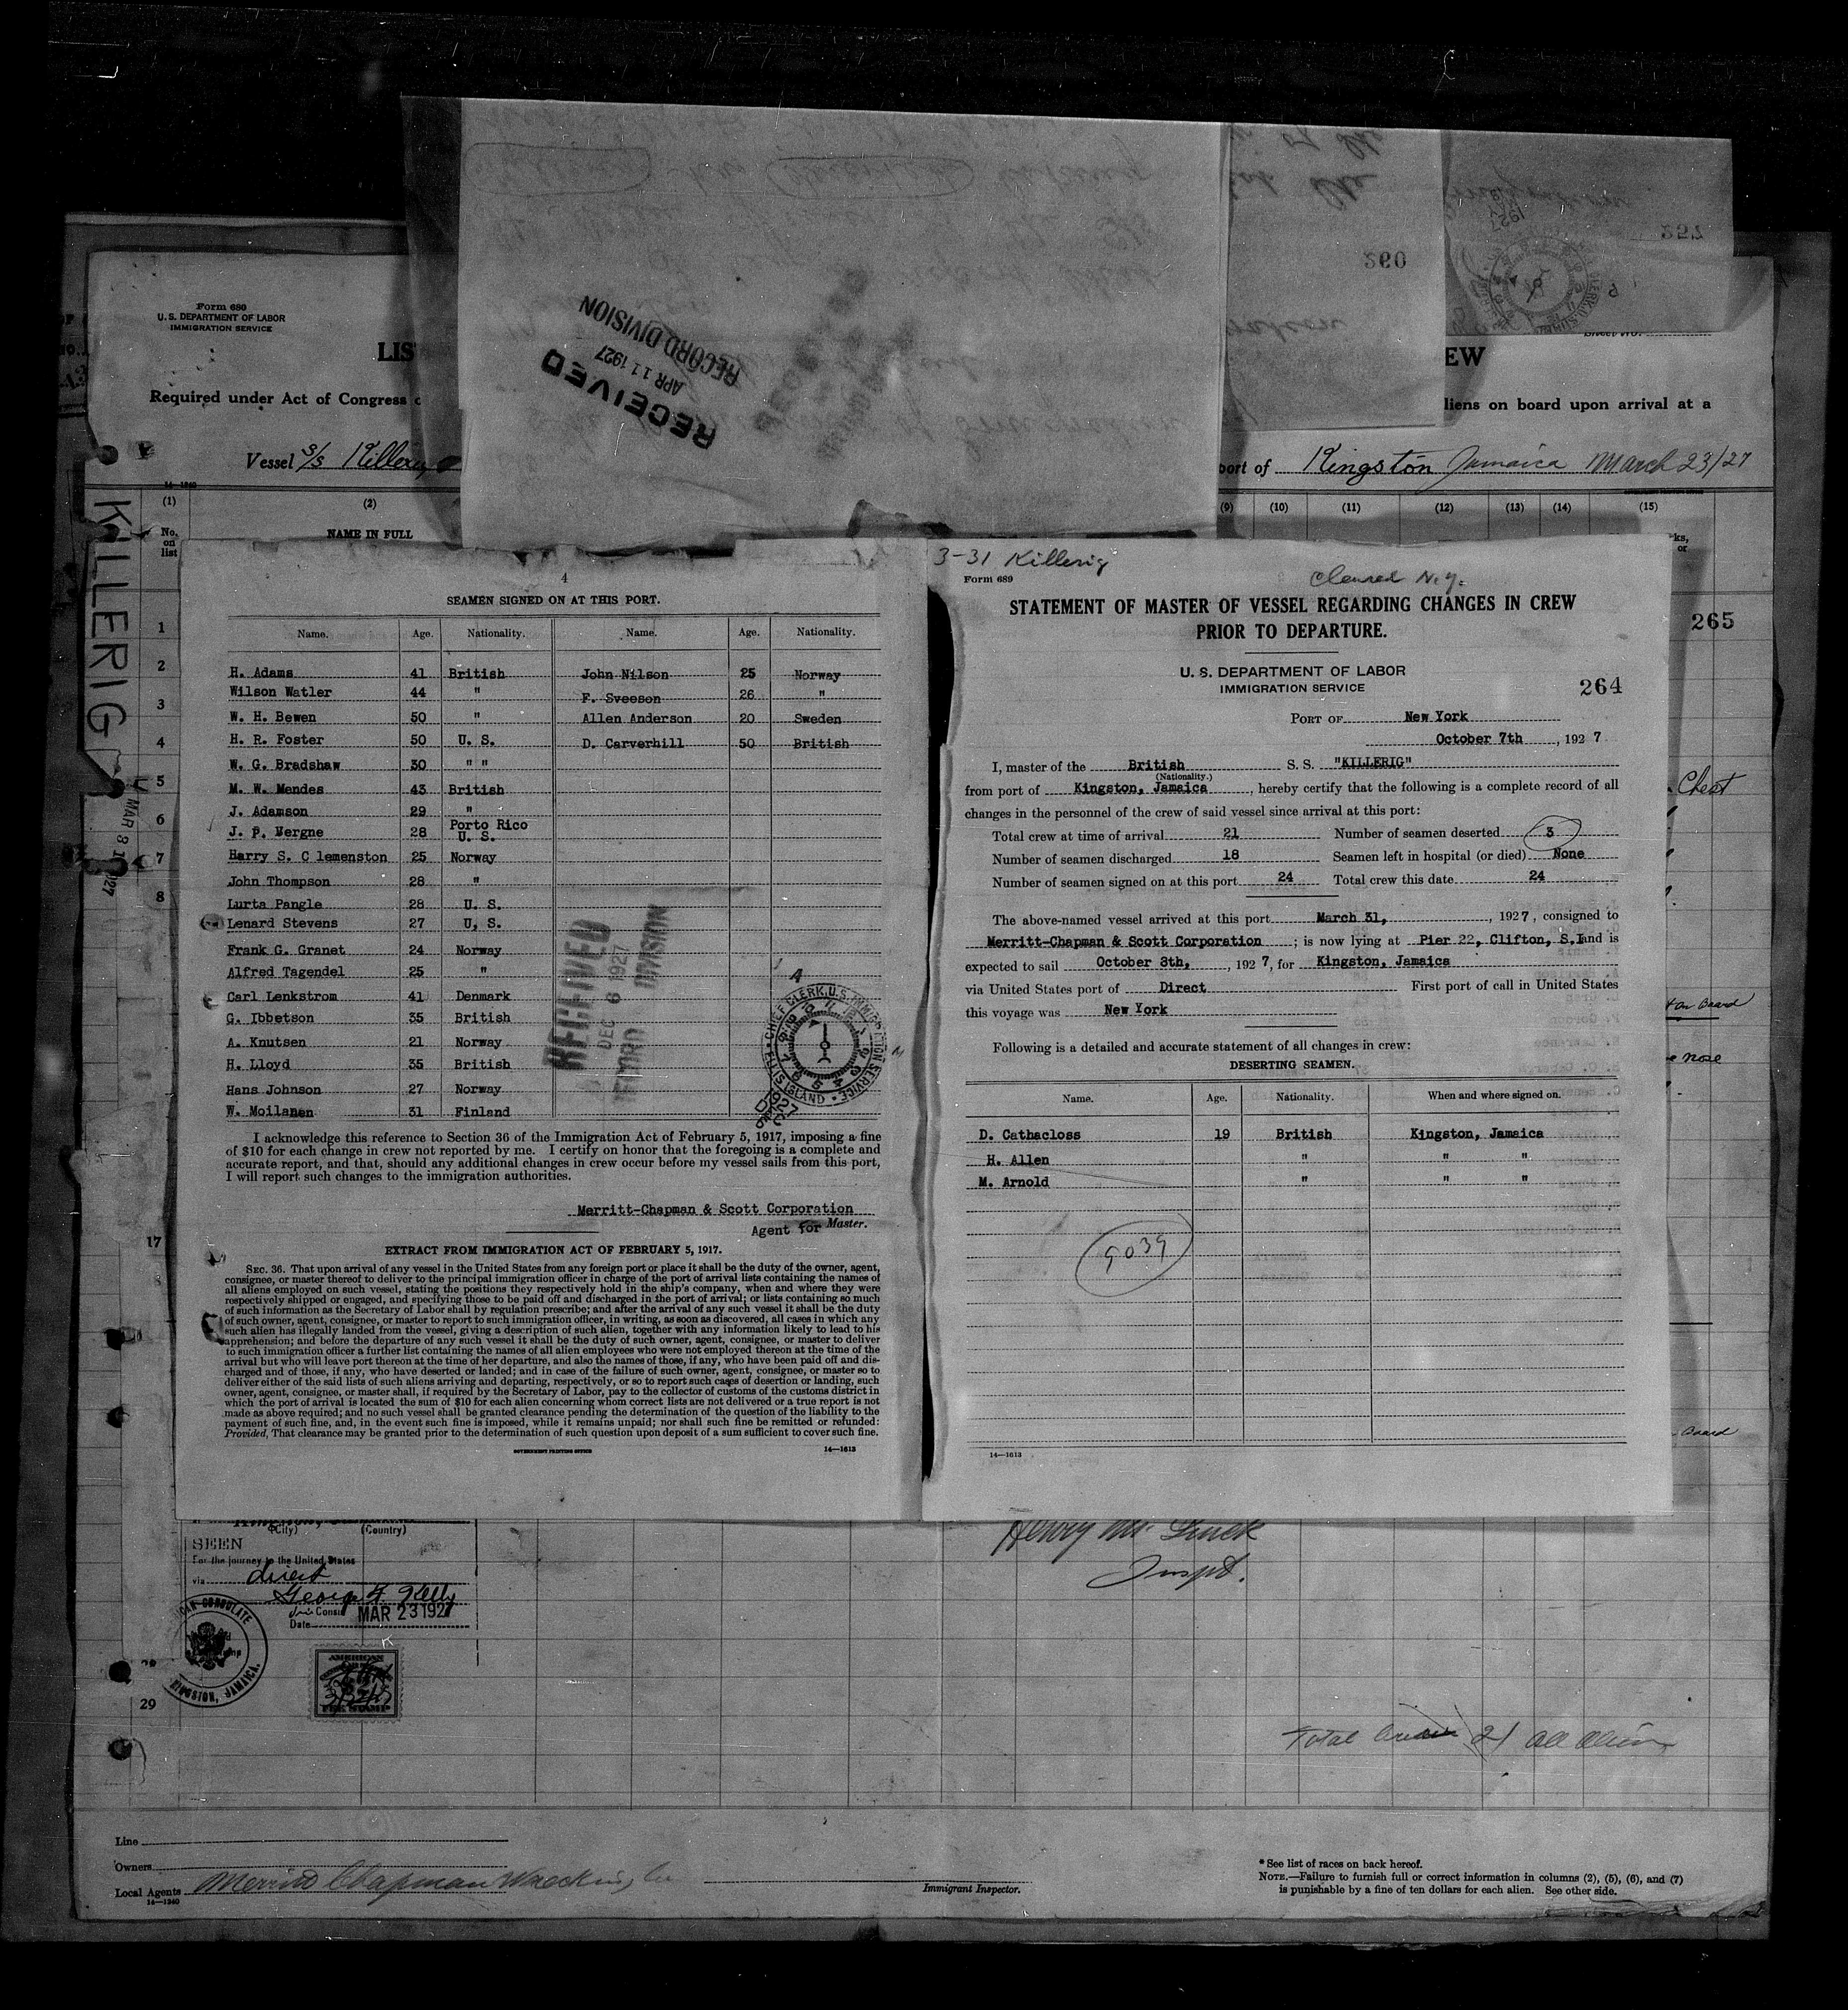 Form 680
U. S. DEPARTMENT OF LABOR
IMMIGRATION SERVICE
LIS
EW
Required under Act of Congress
liens on board upon arrival at a
Vessel S/S Killerig
port of Kingston Jamaica March 23/27
14—1240
(1) (2) (9) (10) (11) (12) (13) (14) (15)
No. on list
NAME IN FULL
RECEIVED
APR 11 1927
RECORD DIVISION
260
257
265
KILLERIG
1
2
3
4
5
6
7
8
17
29
4
SEAMEN SIGNED ON AT THIS PORT.
Name. Age. Nationality. Name. Age. Nationality.
H. Adams 41 British John Nilson 25 Norway
Wilson Watler 44 " F. Sveeson 26 "
W. H. Bewen 50 " Allen Anderson 20 Sweden
H. R. Foster 50 U. S. D. Carverhill 50 British
W. G. Bradshaw 30 " "
M. W. Mendes 43 British
J. Adamson 29 "
J. P. Vergne 28 Porto Rico U. S.
Harry S. C lemenston 25 Norway
John Thompson 28 "
Lurta Pangle 28 U. S.
Lenard Stevens 27 U, S.
Frank G. Granet 24 Norway
Alfred Tagendel 25 "
Carl Lenkstrom 41 Denmark
G. Ibbetson 35 British
A. Knutsen 21 Norway
H. Lloyd 35 British
Hans Johnson 27 Norway
W. Moilanen 31 Finland
RECEIVED
DEC 6 1927
DIVISION
CHIEF CLERK, U. S. IMMIGRATION SERVICE
ELLIS ISLAND
I acknowledge this reference to Section 36 of the Immigration Act of February 5, 1917, imposing a fine
of $10 for each change in crew not reported by me. I certify on honor that the foregoing is a complete and
accurate report, and that, should any additional changes in crew occur before my vessel sails from this port,
I will report such changes to the immigration authorities.
Merritt-Chapman & Scott Corporation
Agent for Master.
EXTRACT FROM IMMIGRATION ACT OF FEBRUARY 5, 1917.
SEC. 36. That upon arrival of any vessel in the United States from any foreign port or place it shall be the duty of the owner, agent,
consignee, or master thereof to deliver to the principal immigration officer in charge of the port of arrival lists containing the names of
all aliens employed on such vessel, stating the positions they respectively hold in the ship's company, when and where they were
respectively shipped or engaged, and specifying those to be paid off and discharged in the port of arrival; or lists containing so much
of such information as the Secretary of Labor shall by regulation prescribe; and after the arrival of any such vessel it shall be the duty
of such owner, agent, consignee, or master to report to such immigration officer, in writing, as soon as discovered, all cases in which any
such alien has illegally landed from the vessel, giving a description of such alien, together with any information likely to lead to his
apprehension; and before the departure of any such vessel it shall be the duty of such owner, agent, consignee, or master to deliver
to such immigration officer a further list containing the names of all alien employees who were not employed thereon at the time of the
arrival but who will leave port thereon at the time of her departure, and also the names of those, if any, who have been paid off and dis-
charged and of those, if any, who have deserted or landed; and in case of the failure of such owner, agent, consignee, or master so to
deliver either of the said lists of such aliens arriving and departing, respectively, or so to report such cases of desertion or landing, such
owner, agent, consignee, or master shall, if required by the Secretary of Labor, pay to the collector of customs of the customs district in
which the port of arrival is located the sum of $10 for each alien concerning whom correct lists are not delivered or a true report is not
made as above required; and no such vessel shall be granted clearance pending the determination of the question of the liability to the
payment of such fine, and, in the event such fine is imposed, while it remains unpaid; nor shall such fine be remitted or refunded:
Provided, That clearance may be granted prior to the determination of such question upon deposit of a sum sufficient to cover such fine.
GOVERNMENT PRINTING OFFICE
14—1613
3-31 Killerig
Form 689
Cleared N.Y.
STATEMENT OF MASTER OF VESSEL REGARDING CHANGES IN CREW
PRIOR TO DEPARTURE.
U. S. DEPARTMENT OF LABOR
IMMIGRATION SERVICE
264
PORT OF New York
October 7th , 1927
I, master of the British S. S. "KILLERIG"
(Nationality.)
from port of Kingston, Jamaica , hereby certify that the following is a complete record of all
changes in the personnel of the crew of said vessel since arrival at this port:
Total crew at time of arrival 21 Number of seamen deserted 3
Number of seamen discharged 18 Seamen left in hospital (or died) None
Number of seamen signed on at this port 24 Total crew this date 24
The above-named vessel arrived at this port March 31, , 1927, consigned to
Merritt-Chapman & Scott Corporation ; is now lying at Pier 22, Clifton, S.I and is
expected to sail October 8th, , 1927, for Kingston, Jamaica
via United States port of Direct First port of call in United States
this voyage was New York
Following is a detailed and accurate statement of all changes in crew:
DESERTING SEAMEN.
Name. Age. Nationality. When and where signed on.
D. Cathacloss 19 British Kingston, Jamaica
H. Allen " " "
M. Arnold " " "
9039
14—1613
Chest
on board
nose
board
(City) (Country)
SEEN
For the journey to the United States
via direct
George F Kelly
Vice Consul
Date MAR 23 1927
AMERICAN CONSULATE
KINGSTON, JAMAICA.
AMERICAN
FEE STAMP
Henry M.
Inspt.
Total Crew 21 all Alien
Line
Owners
Local Agents Merritt Chapman Wrecking Co
14—1240
Immigrant Inspector.
* See list of races on back hereof.
NOTE.—Failure to furnish full or correct information in columns (2), (5), (6), and (7)
is punishable by a fine of ten dollars for each alien. See other side.